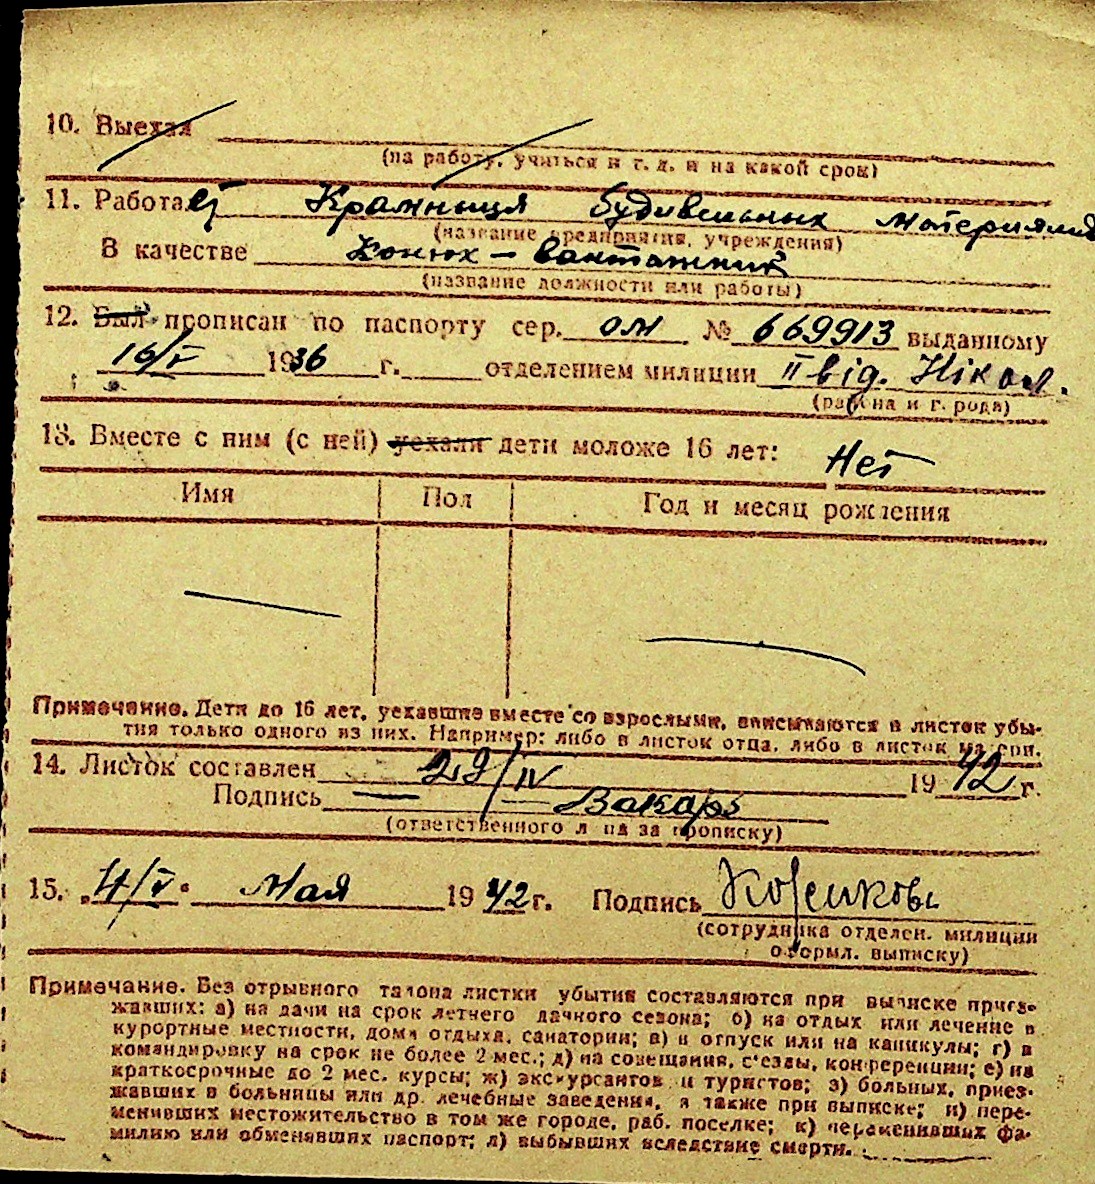 10. Выехал
(на работу, учиться и т. д. и на какой срок)
11. Работает Крамныця будивельных материялив
(название предприятия, учреждения)
В качестве Конюх — вантажник
(название должности или работы)
12. Был прописан по паспорту сер. ОЛ № 669913 выданному
16/V 1936 г. отделением милиции II від. Нікол.
(района и города)
13. Вместе с ним (с ней) уехали дети моложе 16 лет: Нет
Имя Пол Год и месяц рождения
Примечание. Дети до 16 лет, уехавшие вместе со взрослыми, вписываются в листок убы-
тия только одного из них. Например: либо в листок отца, либо в листок матери.
14. Листок составлен 29/IV 1942 г.
Подпись Вакарь
(ответственного лица за прописку)
15. 4/V Мая 1942 г. Подпись
(сотрудника отделен. милиции
оформл. выписку)
Примечание. Без отрывного талона листки убытия составляются при выписке приез-
жавших: а) на дачи на срок летнего дачного сезона; б) на отдых или лечение в
курортные местности, дома отдыха, санатории; в) в отпуск или на каникулы; г) в
командировку на срок не более 2 мес.; д) на совещания, съезды, конференции; е) на
краткосрочные до 2 мес. курсы; ж) экскурсантов и туристов; з) больных, приез-
жавших в больницы или др. лечебные заведения, а также при выписке; и) пере-
менивших местожительство в том же городе, раб. поселке; к) переменивших фа-
милию или обменявших паспорт; л) выбывших вследствие смерти.